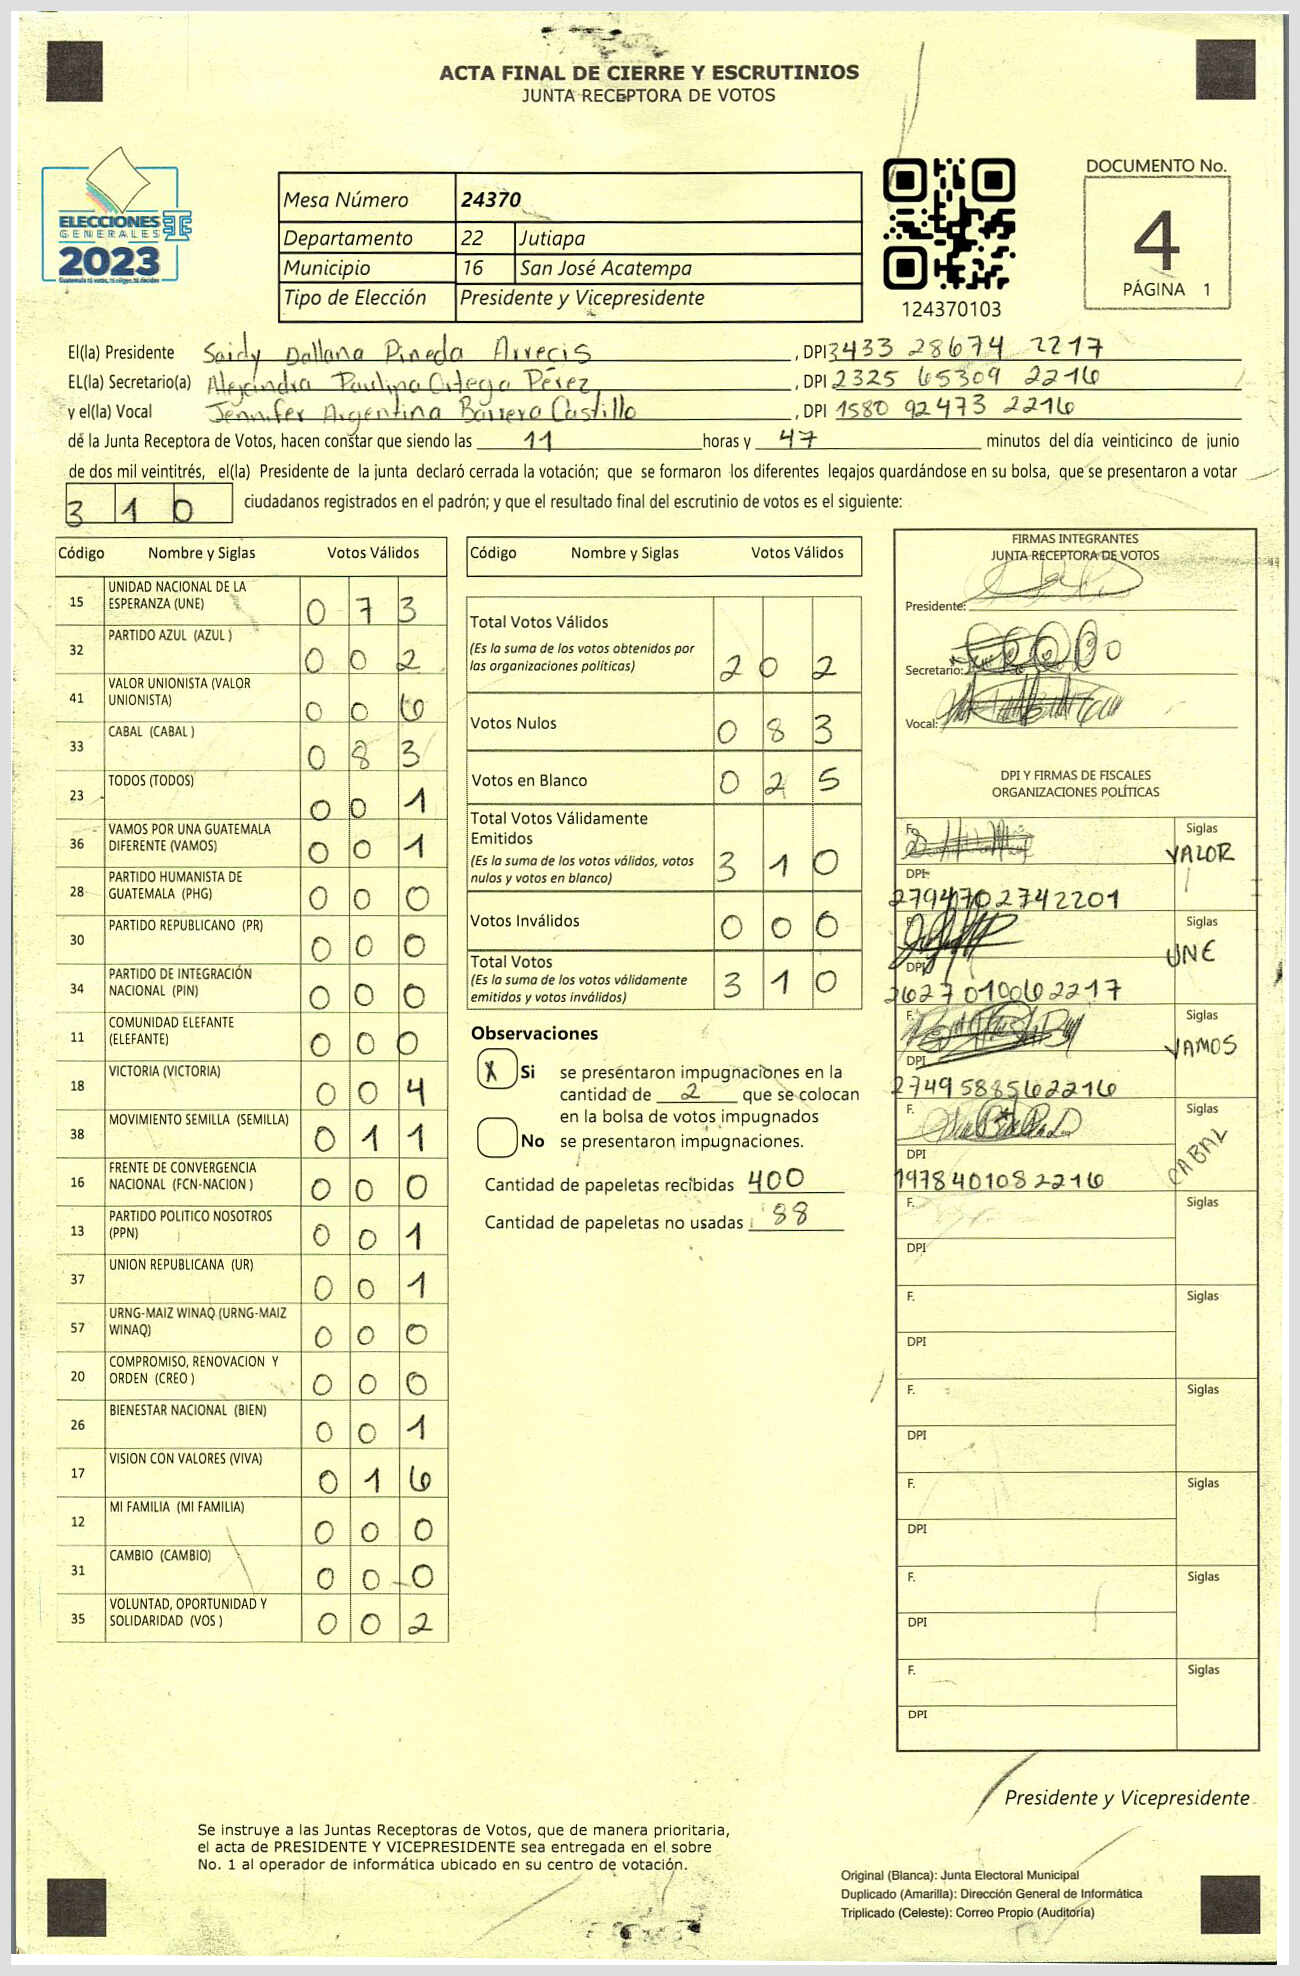 ACTA FINAL DE CIERRE Y ESCRUTINIOS
JUNTA RECEPTORA DE VOTOS
ELECCIONES
GENERALES
2023
Mesa Número 24370
Departamento 22 Jutiapa
Municipio 16 San José Acatempa
Tipo de Elección Presidente y Vicepresidente
124370103
DOCUMENTO No.
4
PÁGINA 1
El(la) Presidente Saidy Dallana Pineda Arrecis, DPI 3433 28674 2217
EL(la) Secretario(a) Alejandra Paulina Ortega Pérez, DPI 2325 65309 2216
y el(la) Vocal Jennifer Argentina Barrera Castillo, DPI 1580 92473 2216
de la Junta Receptora de Votos, hacen constar que siendo las 11 horas y 47 minutos del día veinticinco de junio
de dos mil veintitrés, el(la) Presidente de la junta declaró cerrada la votación; que se formaron los diferentes legajos guardándose en su bolsa, que se presentaron a votar
310 ciudadanos registrados en el padrón; y que el resultado final del escrutinio de votos es el siguiente:
Código Nombre y Siglas Votos Válidos
15 UNIDAD NACIONAL DE LA ESPERANZA (UNE) 0 7 3
32 PARTIDO AZUL (AZUL ) 0 0 2
41 VALOR UNIONISTA (VALOR UNIONISTA) 0 0 6
33 CABAL (CABAL ) 0 8 3
23 TODOS (TODOS) 0 0 1
36 VAMOS POR UNA GUATEMALA DIFERENTE (VAMOS) 0 0 1
28 PARTIDO HUMANISTA DE GUATEMALA (PHG) 0 0 0
30 PARTIDO REPUBLICANO (PR) 0 0 0
34 PARTIDO DE INTEGRACIÓN NACIONAL (PIN) 0 0 0
11 COMUNIDAD ELEFANTE (ELEFANTE) 0 0 0
18 VICTORIA (VICTORIA) 0 0 4
38 MOVIMIENTO SEMILLA (SEMILLA) 0 1 1
16 FRENTE DE CONVERGENCIA NACIONAL (FCN-NACION ) 0 0 0
13 PARTIDO POLITICO NOSOTROS (PPN) 0 0 1
37 UNION REPUBLICANA (UR) 0 0 1
57 URNG-MAIZ WINAQ (URNG-MAIZ WINAQ) 0 0 0
20 COMPROMISO, RENOVACION Y ORDEN (CREO ) 0 0 0
26 BIENESTAR NACIONAL (BIEN) 0 0 1
17 VISION CON VALORES (VIVA) 0 1 6
12 MI FAMILIA (MI FAMILIA) 0 0 0
31 CAMBIO (CAMBIO) 0 0 0
35 VOLUNTAD, OPORTUNIDAD Y SOLIDARIDAD (VOS ) 0 0 2
Código Nombre y Siglas Votos Válidos
Total Votos Válidos
(Es la suma de los votos obtenidos por
las organizaciones políticas) 2 0 2
Votos Nulos 0 8 3
Votos en Blanco 0 2 5
Total Votos Válidamente
Emitidos
(Es la suma de los votos válidos, votos
nulos y votos en blanco) 3 1 0
Votos Inválidos 0 0 0
Total Votos
(Es la suma de los votos válidamente
emitidos y votos inválidos) 3 1 0
Observaciones
X Si se presentaron impugnaciones en la
cantidad de 2 que se colocan
en la bolsa de votos impugnados
No se presentaron impugnaciones.
Cantidad de papeletas recibidas 400
Cantidad de papeletas no usadas 88
FIRMAS INTEGRANTES
JUNTA RECEPTORA DE VOTOS
Presidente:
Secretario:
Vocal:
DPI Y FIRMAS DE FISCALES
ORGANIZACIONES POLÍTICAS
F. Siglas
VALOR
DPI
2794702742201
F. Siglas
UNE
DPI
2627010062217
F. Siglas
VAMOS
DPI
2749588562216
F. Siglas
CABAL
DPI
1978401082216
F. Siglas
DPI
F. Siglas
DPI
F. Siglas
DPI
F. Siglas
DPI
F. Siglas
DPI
F. Siglas
DPI
Presidente y Vicepresidente
Se instruye a las Juntas Receptoras de Votos, que de manera prioritaria,
el acta de PRESIDENTE Y VICEPRESIDENTE sea entregada en el sobre
No. 1 al operador de informática ubicado en su centro de votación.
Original (Blanca): Junta Electoral Municipal
Duplicado (Amarilla): Dirección General de Informática
Triplicado (Celeste): Correo Propio (Auditoría)